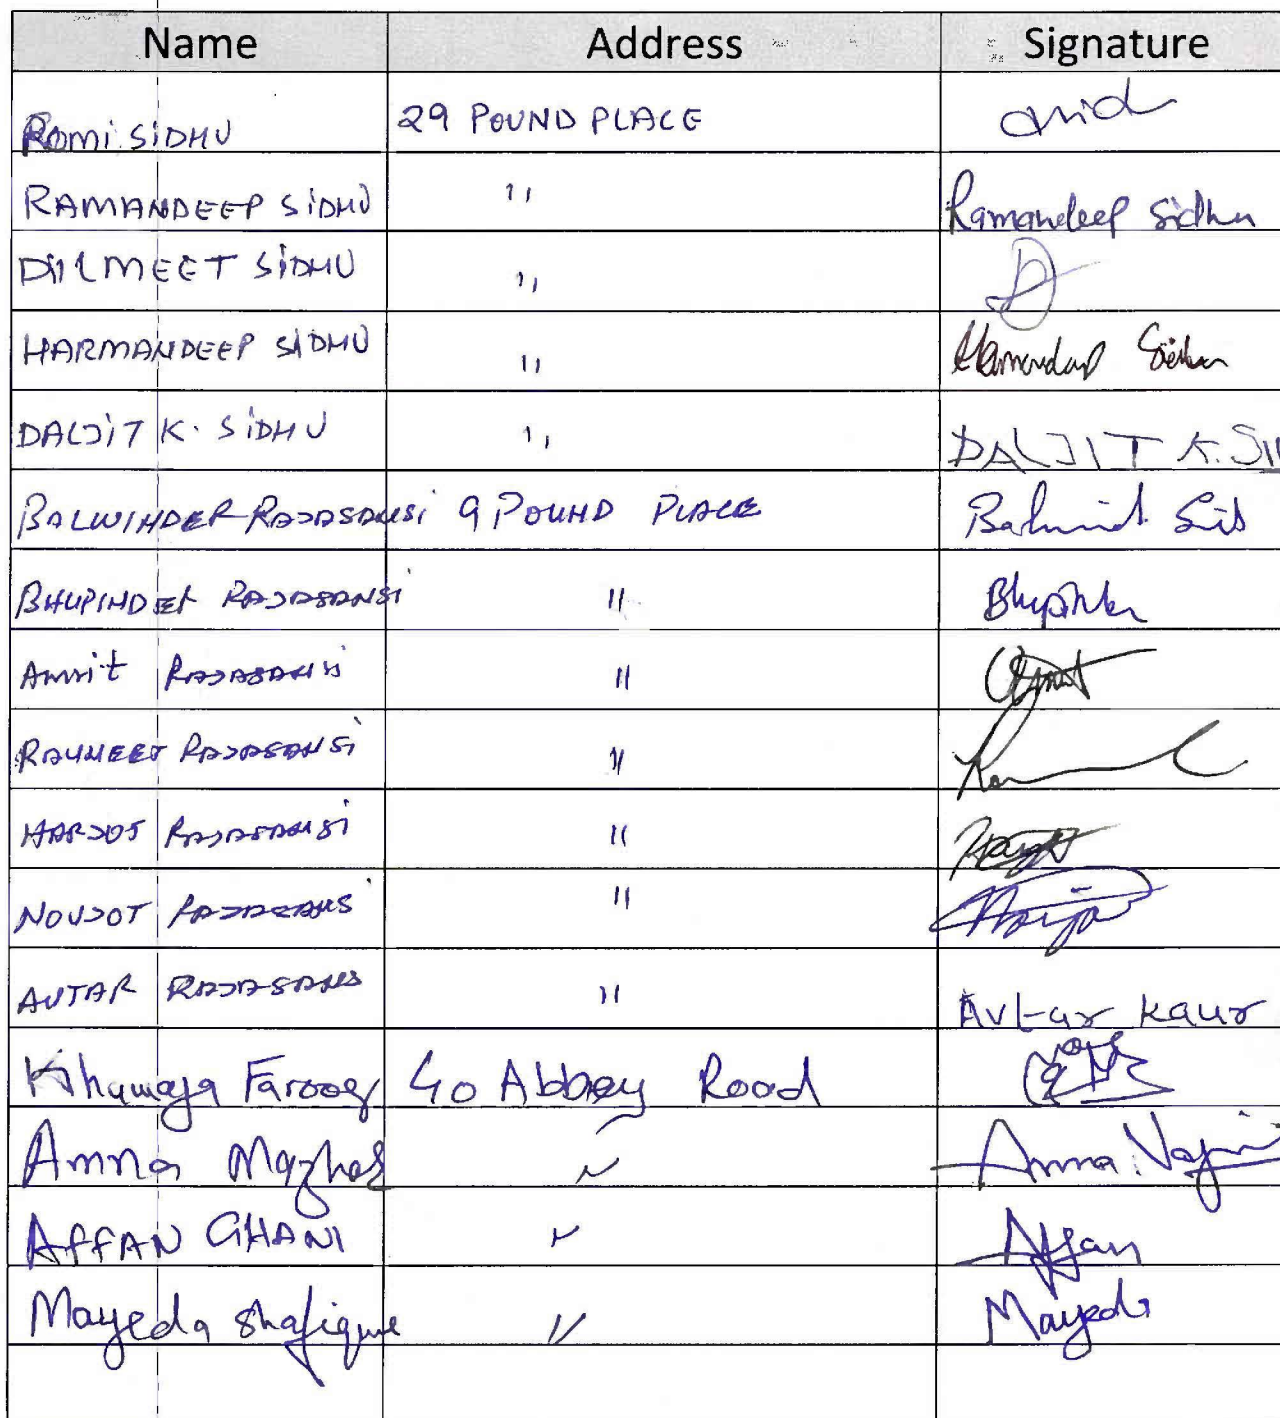 Name Address Signature
Romi SIDHU 29 POUND PLACE
RAMANDEEP SIDHU " Ramandeep Sidhu
DILMEET SIDHU "
HARMANDEEP SIDHU " Harmandeep Sidhu
DALJIT K. SIDHU " DALJIT K. SI
BALWINDER RAJASANSI 9 POUND PLACE
BHUPINDER RAJASANSI " Bhupinder
Amrit RAJASANSI "
RAVNEET RAJASANSI "
HARJOT RAJASANSI "
NOVJOT RAJASANS "
AVTAR RAJASANS " Avtar kaur
Khawaja Farooq 40 Abbey Road
Amna Mazhar " Amna
AFFAN GHANI " Affan
Mayeda Shafique " Mayeda